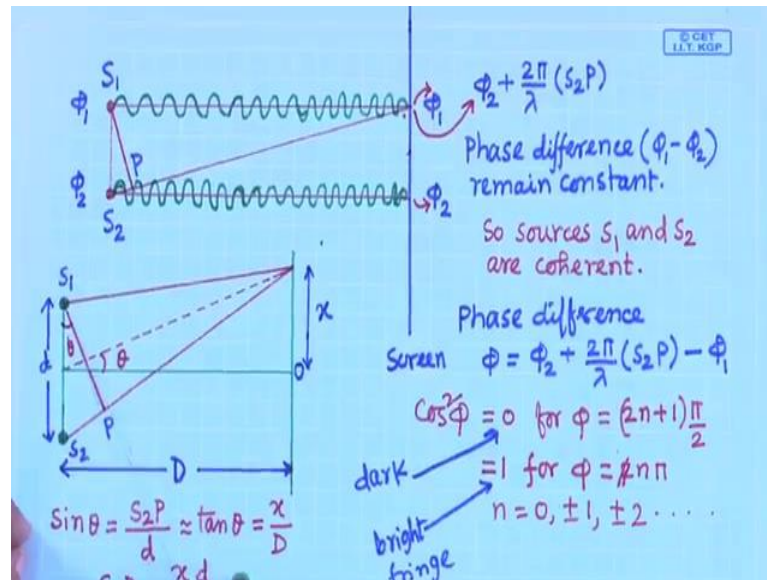 © CET
I.I.T. KGP
S₁
ϕ₁
ϕ₁
ϕ₂ + 2π/λ (S₂P)
P
Phase difference (ϕ₁ - ϕ₂)
remain constant.
ϕ₂
ϕ₂
S₂
So sources S₁ and S₂
are coherent.
S₁
x
d
θ
θ
O
P
S₂
D
Phase difference
Screen ϕ = ϕ₂ + 2π/λ (S₂P) - ϕ₁
Cos²ϕ = 0 for ϕ = (2n+1) π/2
dark
=1 for ϕ = nπ
n = 0, ±1, ±2 .....
bright
fringe
Sinθ = S₂P/d ≈ tanθ = x/D
xd